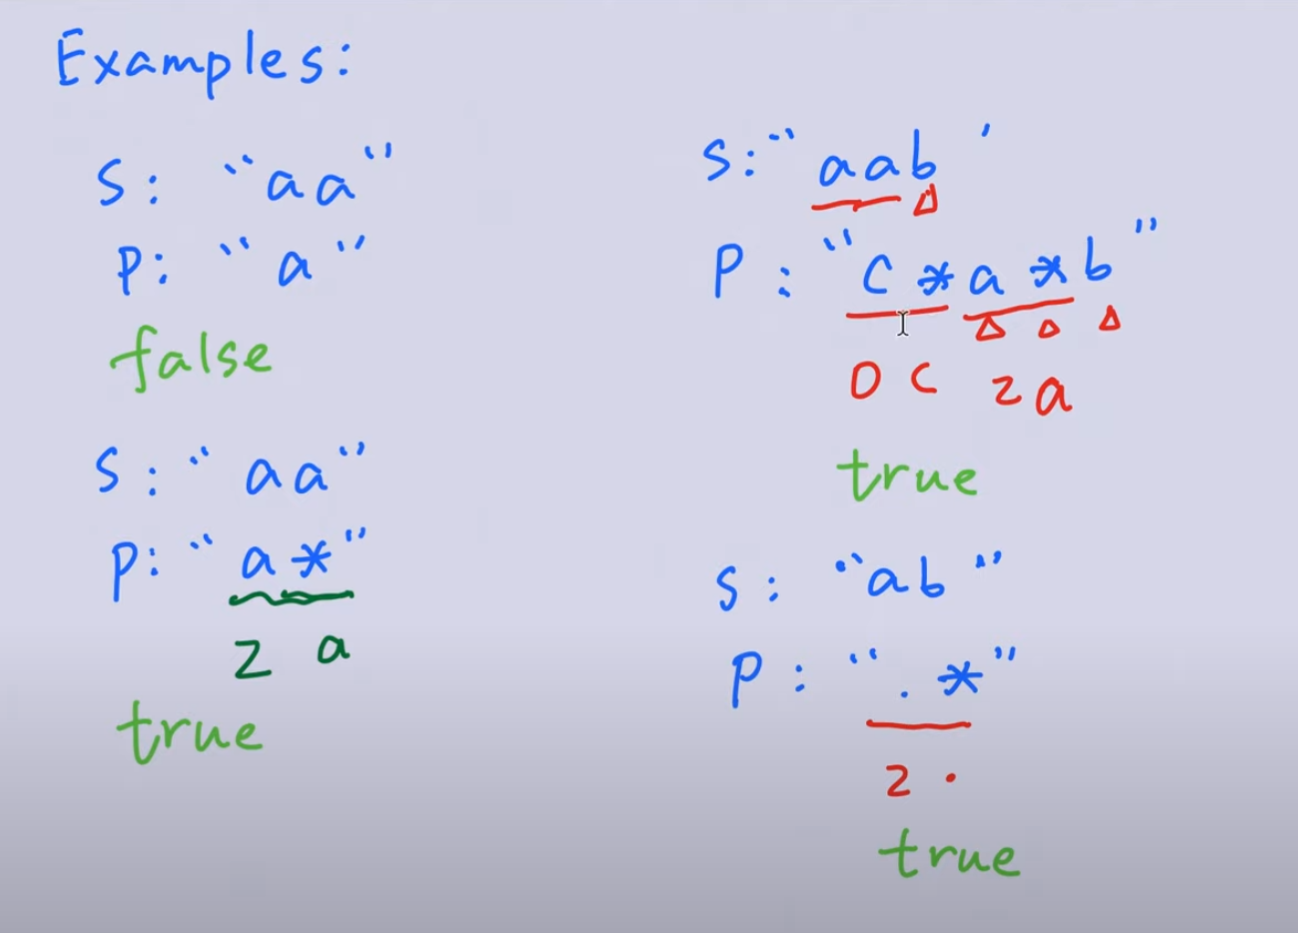 Examples:
S: "aa"
P: "a"
false
S: "aa"
P: "a*"
2 a
true
S: "aab '
P: "C*a*b"
0 C 2a
true
S: "ab"
P: ".*"
2 .
true